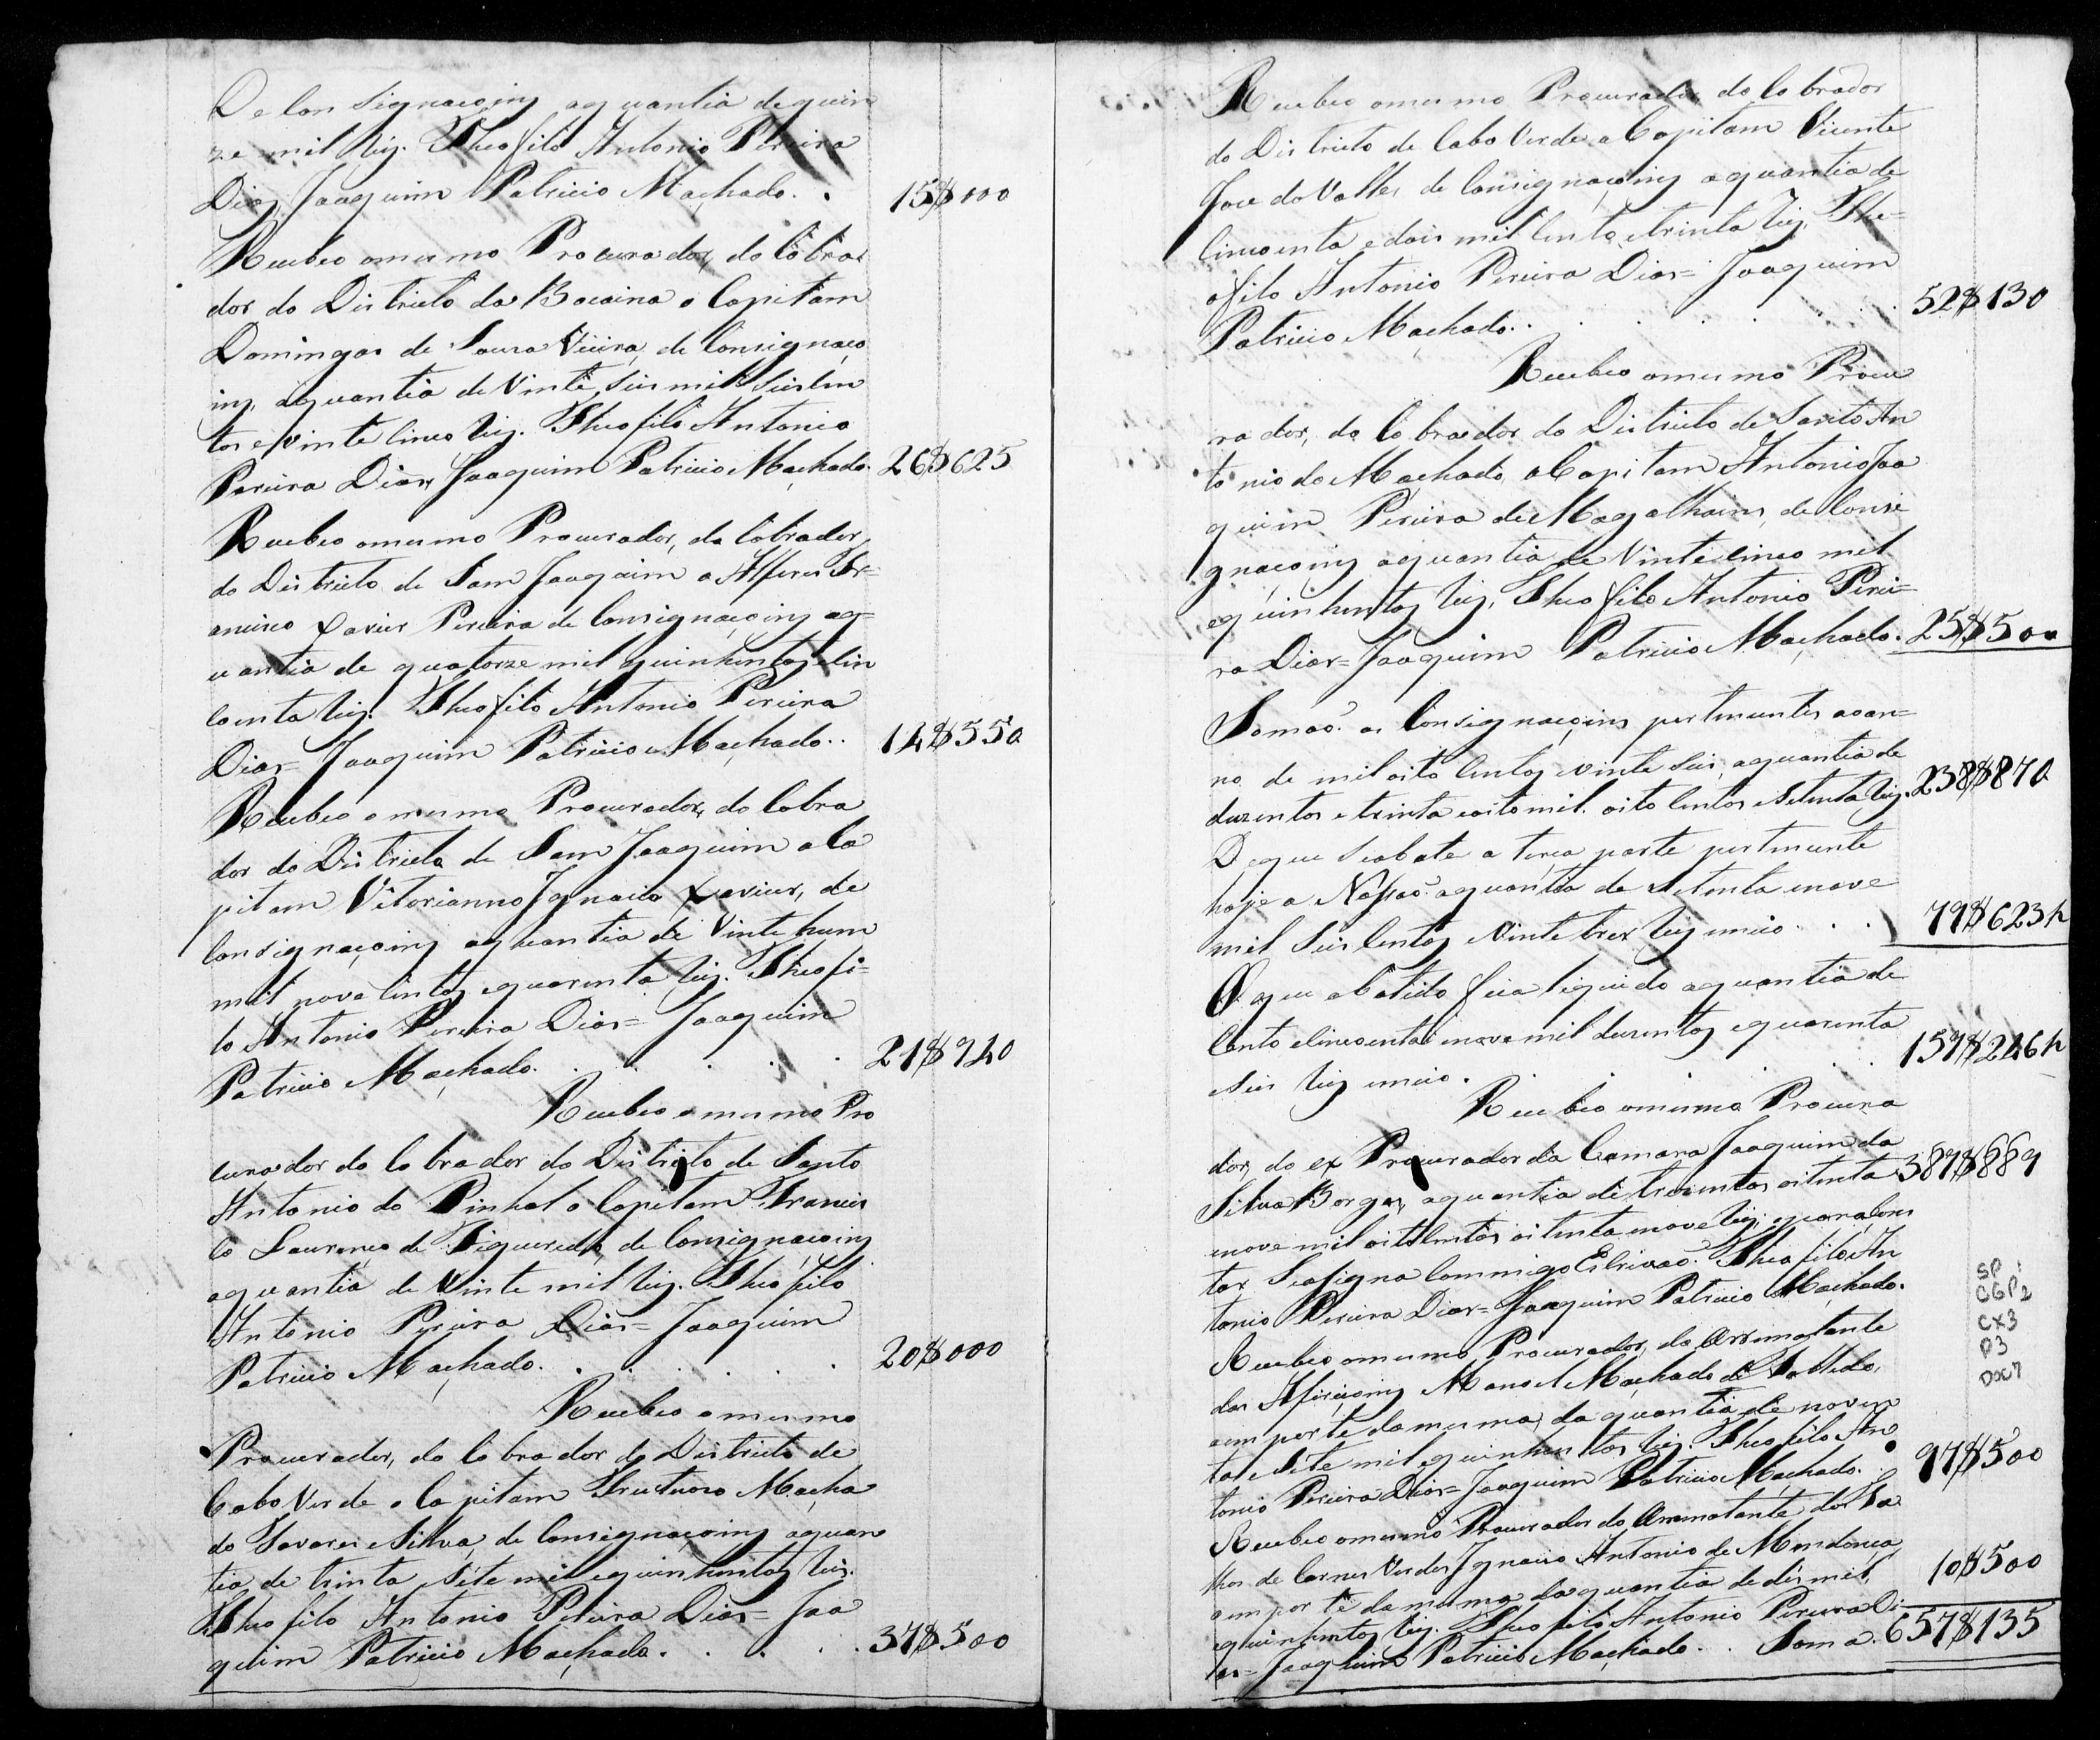 De Con signaçoinz aquantia de quin
ze mil Reiz. Theofilo Antonio Pereira
Diaz, Joaquim Patricio Machado. . 15$000
Recebeo omesmo Procurador, do Cobra
dor do Districto da Bocaina o Capitam
Domingos de Souza Vieira, de Consignaço
inz, aquantia de Vinte, Seis mil Seis Cen
tos e Vinte Cinco Reiz. Theofilo Antonio
Pereira Dias, Joaquim Patricio Machado. 26$625
Recebeo omesmo Procurador, do Cobrador,
do Districto de Sam Joaquim o Alferes
Xavier Pereira de Consignaçoinz aq=
uantia de quatorze mil quinhentoz e Cin
coenta Reiz. Theofilo Antonio Pereira
Dias= Joaquim Patricio Machado. . 14$550
Recebeo omesmo Procurador, do Cobra
dor do Districto de Sam Joaquim o Ca
pitam Vitorianno Ignacio Xavier, de
Consignaçoinz aquantia de Vinte hum
mil nove Centoz e quarenta Reiz. Theofi=
lo Antonio Pereira Dias= Joaquim
Patricio Machado. . . . . . 21$940
Recebeo omesmo Pro
curador do Cobrador do Districto de Santo
Antonio do Pinhal o Capitam Francis
co Lourenço de Figueredo, de Consignaçoinz
aquantia de Vinte mil Reiz. Theofilo
Antonio Pereira Dias= Joaquim
Patricio Machado. . . . . . 20$000
Recebeo omesmo
Procurador, do Cobrador do Districto de
Cabo Verde o Capitam Fructuozo Macha
do Tavares e Silva, de Consignaçoinz aquan
tia de trinta Sete mil e quinhentoz Reis.
Theofilo Antonio Pereira Dias= Joa
quim Patricio Machado. . . . . 37$500
Recebeo omesmo Procurador do Cobrador
do Districto de Cabo Verde o Capitam Vicente
Joze do Valle, de Consignaçoinz aquantia de
Cincoenta e dois mil Cento e trinta Reiz, The=
ofilo Antonio Pereira Dias= Joaquim
Patricio Machado. . . . . . . 52$130
Recebeo omesmo Procu
rador, do Cobrador do Districto de Santo An
tonio do Machado, o Capitam Antonio Joa
quim Pereira de Magalhains, de Consi
gnaçoinz aquantia de Vinte cinco mil
e quinhentoz Reiz, Theofilo Antonio Perei=
ra Dias= Joaquim Patricio Machado. 25$500
Somaõ as Consignaçoins pertencentes aoan=
no de mil oito Centoz e vinte Seis, aquantia de
duzentos e trinta e oito mil. oito Centos e Setenta Reiz. 238$870
De que Seabate a terça parte pertencente
hoje a Nassaõ aquantia de Setenta e nove
mil Seis Centoz e Vinte trez Reiz e meio . . . 79$623½
O que abatido fica liquido aquantia de
Cento e Cincoenta e nove mil duzentoz e quarenta
e Seis Reiz e meio. . . . . . 159$246½
Recebeo omesmo Procura
dor, do ex Procurador da Camara Joaquim da
Silva Borges, aquantia de trezentos oitenta 389$889
e nove mil oito Centos oitenta e nove Reiz, e para Cons
tar Se asigna Commigo Escrivaõ. Theofilo An
tonio Pereira Dias= Joaquim Patricio Machado.
Recebeo omesmo Procurador, do Arrematante
das Afiriçoinz Manoel Machado de
a em porte da mesma, da quantia de noven
ta e Sete mil e quinhentos Reiz. Theofilo An
tonio Pereira Dias= Joaquim Patricio Machado. . 97$500
Recebeo omesmo Procurador do Arrematante dos Ta
lhos de Carnes Verdes Ignacio Antonio de Mendonça,
a em por te da mesma da quantia de dés mil
e quinhentoz Reiz. Theofilo Antonio Pereira Di 10$500
as= Joaquim Patricio Machado. . Soma. 657$135
SP
CGP2
CX3
P3
Dx7